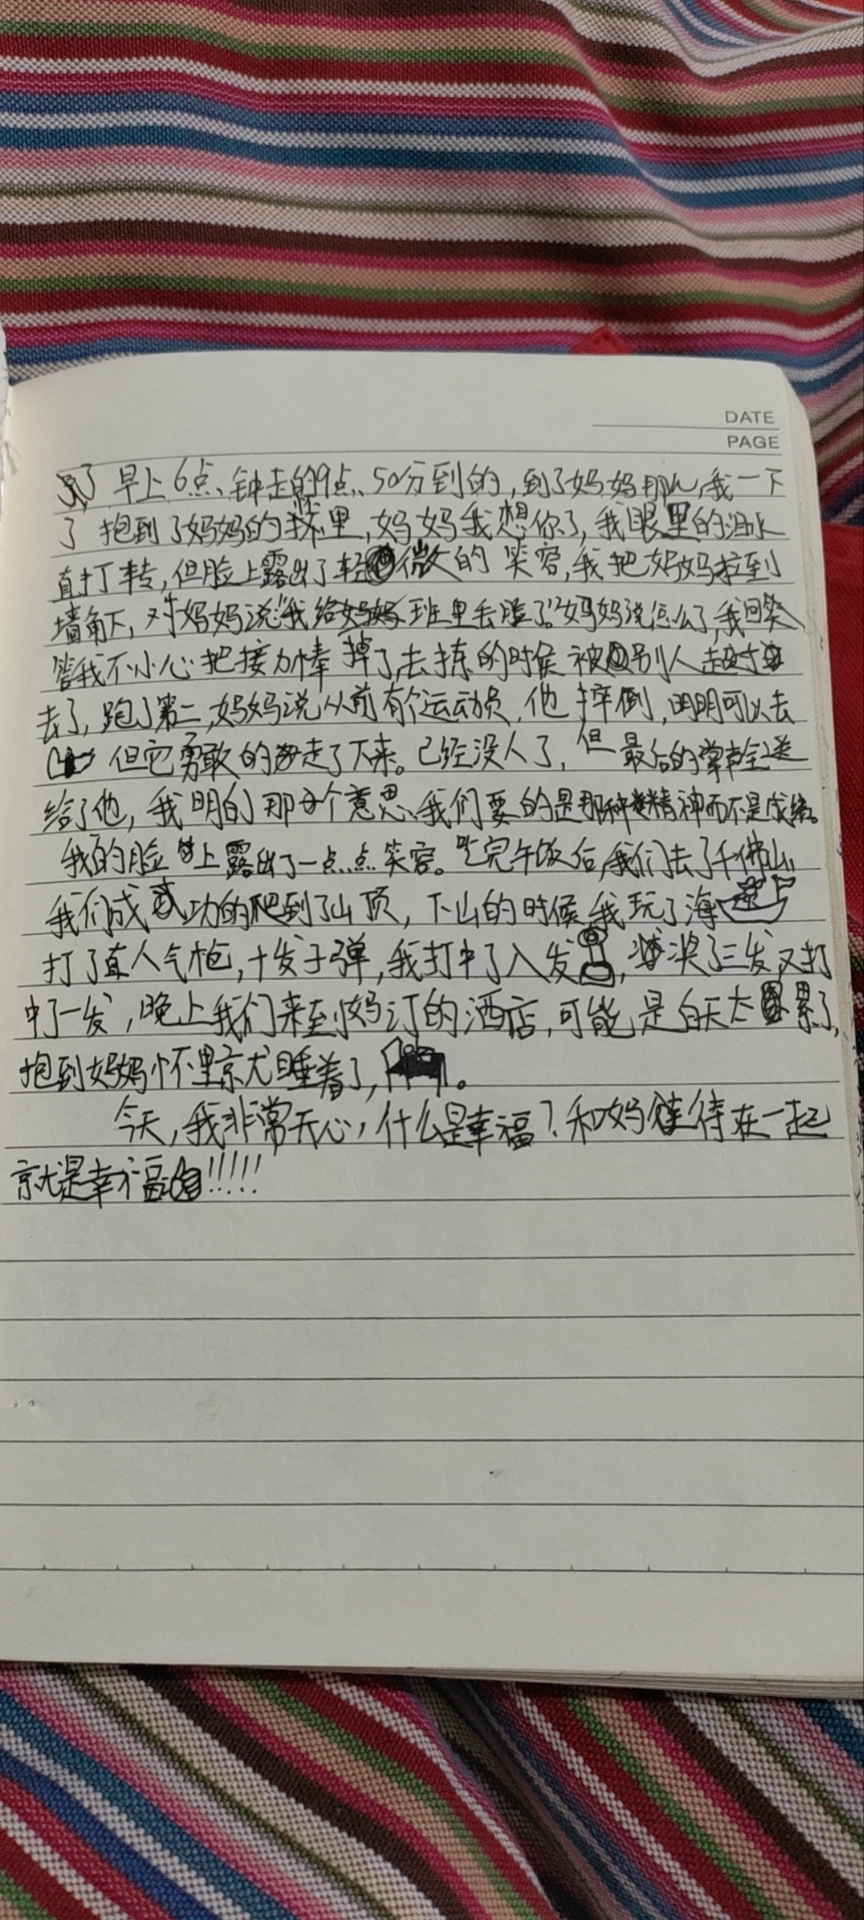 DATE
PAGE
了 早上6点钟走的9点50分到的,到了妈妈那儿,我一下
了 抱到了妈妈的怀里,妈妈我想你了,我眼里的泪水
直打转,但脸上露出了轻微的笑容,我把妈妈拉到
墙角下,对妈妈说"我给班里丢脸了"妈妈说怎么了,我回
答我不小心把接力棒掉了,去拣的时候被别人超过
去了,跑了第二,妈妈说从前有个运动员,他摔倒,明明可以去
但它勇敢的走了下来。已经没人了,但最后的掌声全送
给了他,我明白那个意思,我们要的是那种精神而不是成绩。
我的脸上露出了一点点笑容。吃完午饭后,我们去了千佛山
我们成功的爬到了山顶,下山的时候,我玩了海
打了真人气枪,十发子弹,我打中了八发,奖了三发,又打
中了一发,晚上我们来到妈订的酒店,可能是白天太累了,
抱到妈妈怀里京尤睡着了,
今天,我非常开心,什么是幸福?和妈待在一起
就是幸福!!!!!